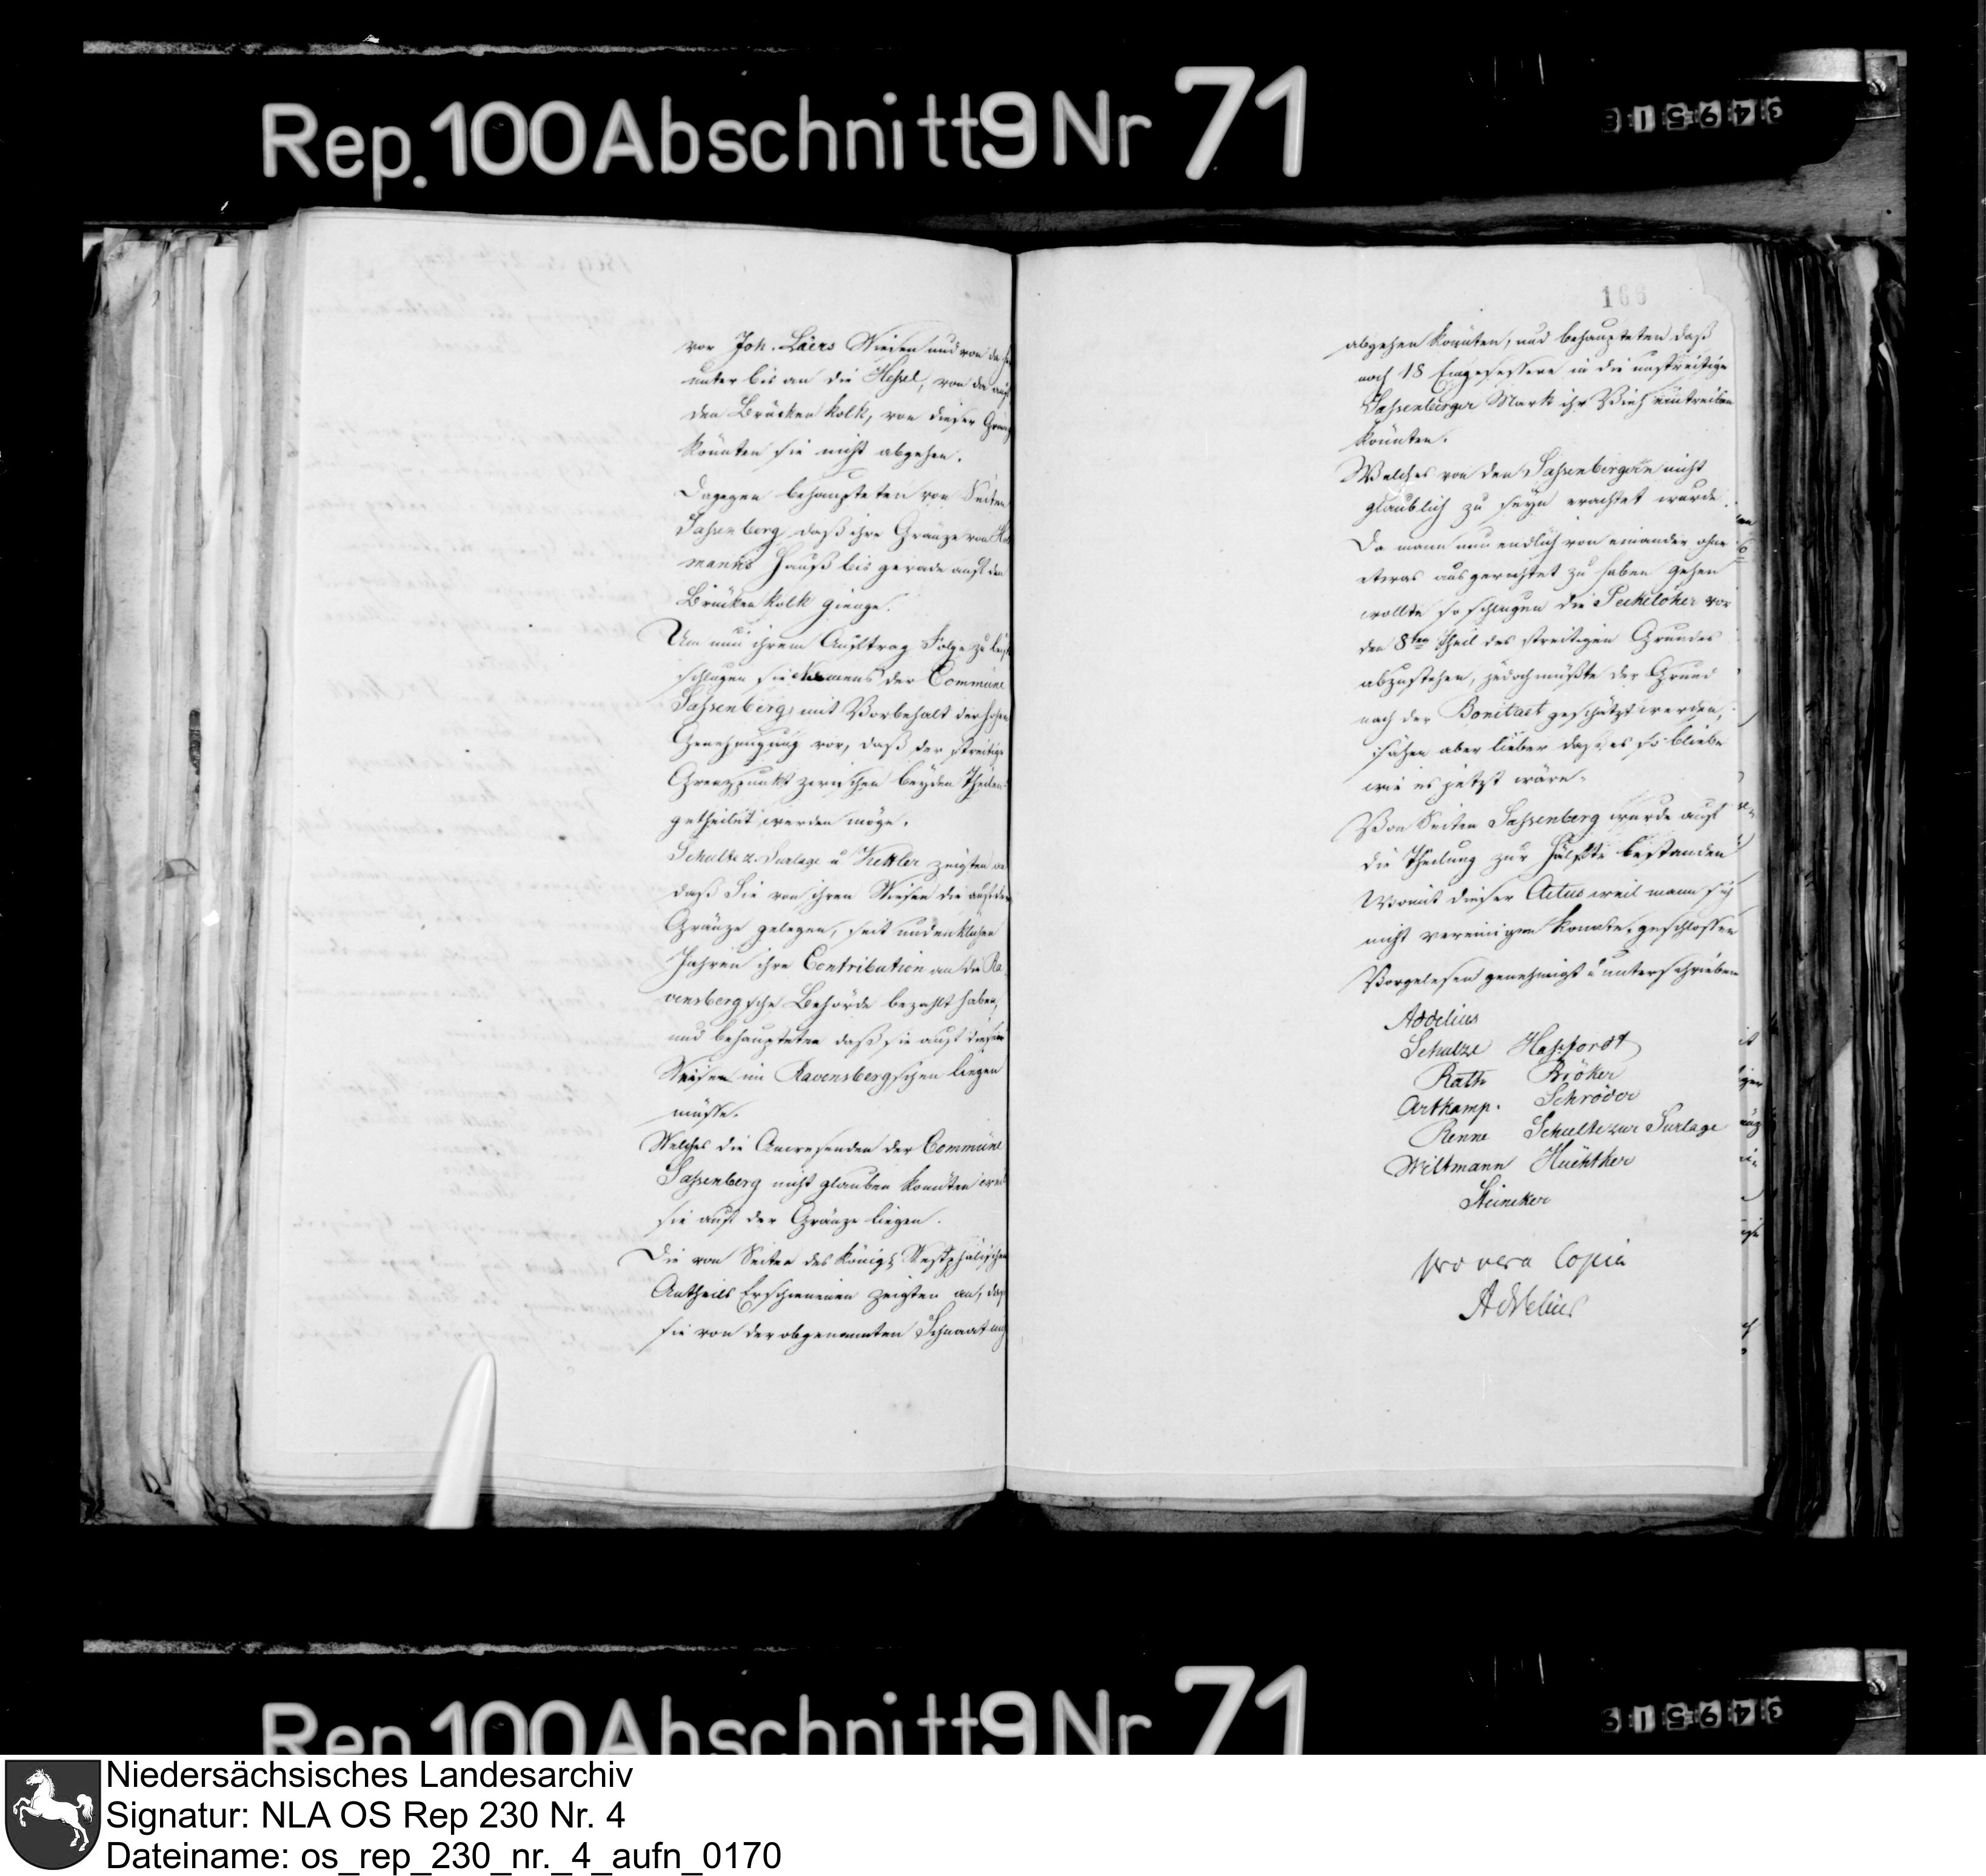 Rep. 100 Abschnitt 9 Nr 71
vor Joh. Läers Wiesen und von da hin
unter bis an die Hessel, von da auf
den Brücken Kolk, von dieser Gränz
könnten sie nicht abgehen.
Dagegen behaupteten von Seiten
Sassenberg, daß ihre Gränze von
manns Hauß bis gerade auf den
Brücken Kolk gienge.
Um nun ihrem Auftrag Folge zu
schlugen sie Namens der Commune
Sassenberg, mit Vorbehalt der hohen
Genehmigung vor, daß der streitige
Grenzpunkt zwischen beyden Theilen
getheilet werden möge.
Schulte z. Surlage u Kettler zeigten an
daß Sie von ihren Wiesen die auf der
Gränze gelegen, seit undenklichen
Jahren ihre Contribution an die Ra
vensbergsche Behörde bezahlt haben,
und behaupteten daß sie auf diesem
Wiesen im Ravensbergschen liegen
müsse.
Welches die Anwesenden der Commune
Sassenberg nicht glauben konnten weil
sie auf der Gränze liegen.
Die von Seiten des Königl Westphälischen
Antheils Erschienenen zeigten an, daß
sie von der obgenannten Schnaat nicht
166
abgehen könnten, und behaupteten daß
noch 18 Eingesessene in die unstreitige
Sassenberger Mark ihr Vieh eintreiben
könnten.
Welches von den Sassenbergern nicht
glaublich zu seyn erachtet wurde.
Da mann nun endlich von einander ohne
etwas ausgerichtet zu haben gehen
wollte so schlugen die Peckeloher vor
den 8ten Theil des streitigen Grundes
abzustehen, jedoch müßte der Grund
nach der Bonitaet geschätzt werden,
sähen aber lieber daß es so bliebe
wie es jetzt wäre.
Von Seiten Sassenberg wurde auf
die Theilung zur Hälfte bestanden
Womit dieser Actus weil mann sich
nicht vereinigen konnte, geschlossen
Vorgelesen genehmigt u unterschrieben
Addelius
Schulze Hassfordt
Rath Bröker
Artkamp. Schröder
Renne Schulte zur Surlage
Wiltmann Huchtker
Steineker
pro vera Copia
Addelius
Rep. 100 Abschnitt 9 Nr 71
Niedersächsisches Landesarchiv
Signatur: NLA OS Rep 230 Nr. 4
Dateiname: os_rep_230_nr._4_aufn_0170